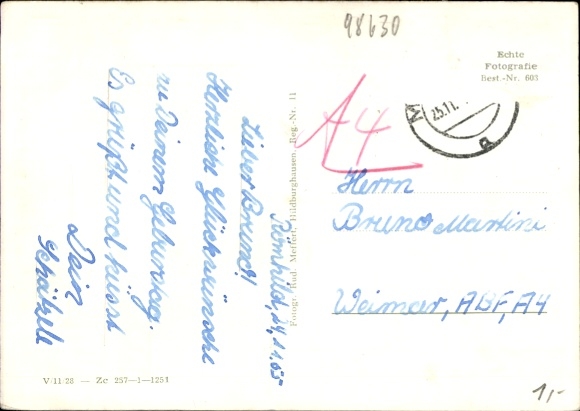 98630
Echte
Fotografie
Best.-Nr. 603
25.11.
A4
Römhild, 24.11.55
Lieber Bruno!
Herzliche Glückwünsche
zu Deinem Geburtstag.
Es grüßt und küsst
Dein
Schätzle
Fotogr. Rud. Meffert, Hildburghausen, Reg.-Nr. 11
Herrn
Bruno Martini
Weimar, ABF, A4
V/11/28 — Zc 257—1—1254
1,-